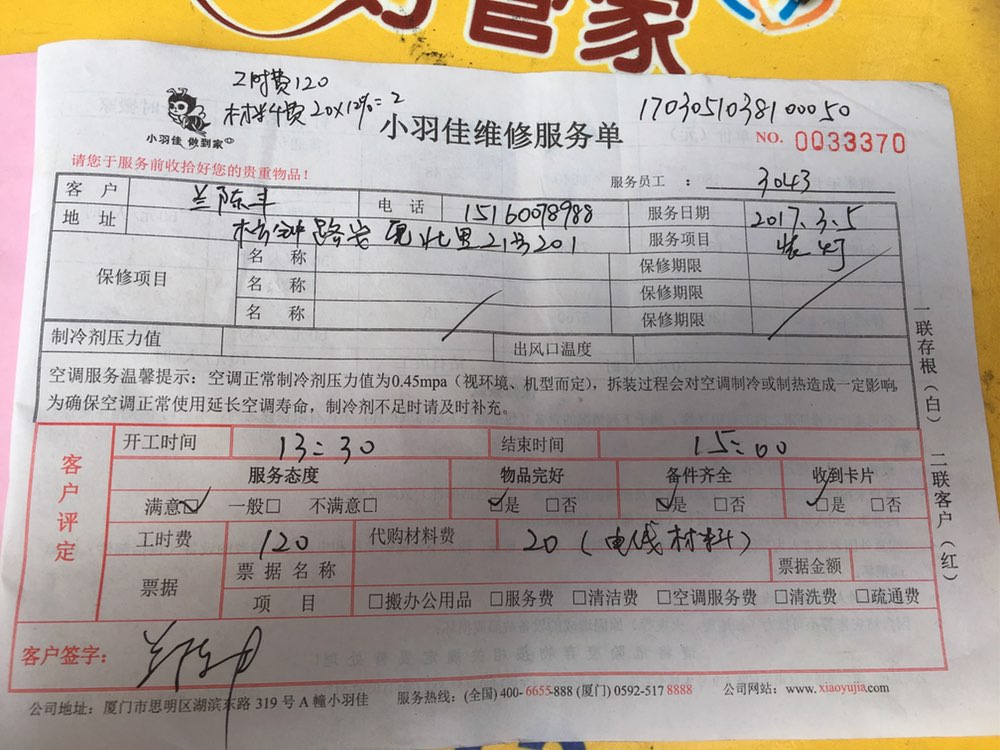 好管家
工时费120
材料费20×12%=2
17030510381000050
小羽佳 做到家
小羽佳维修服务单
NO. 0033370
请您于服务前收拾好您的贵重物品！
服务员工 ： 3043
客 户 兰陈丰 电 话 15160078988 服务日期 2017.3.5
地 址 路 里21号201 服务项目 装灯
保修项目 名 称 保修期限
名 称 保修期限
名 称 保修期限
制冷剂压力值 出风口温度
空调服务温馨提示：空调正常制冷剂压力值为0.45mpa（视环境、机型而定），拆装过程会对空调制冷或制热造成一定影响，
为确保空调正常使用延长空调寿命，制冷剂不足时请及时补充。
一联存根（白） 二联客户（红）
客户评定
开工时间 13:30 结束时间 15:00
服务态度 物品完好 备件齐全 收到卡片
满意☑ 一般□ 不满意□ ☑是 □否 ☑是 □否 ☑是 □否
工时费 120 代购材料费 20（电线材料）
票据 票据名称 票据金额
项 目 □搬办公用品 □服务费 □清洁费 □空调服务费 □清洗费 □疏通费
客户签字：
公司地址：厦门市思明区湖滨东路 319 号 A 幢小羽佳 服务热线：(全国) 400- 6655-888 (厦门) 0592-517 8888 公司网站：www. xiaoyujia.com